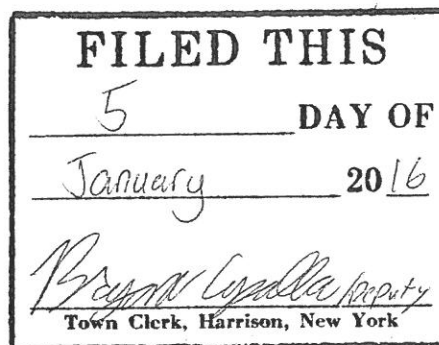 FILED THIS
5 DAY OF
January 2016
Deputy
Town Clerk, Harrison, New York